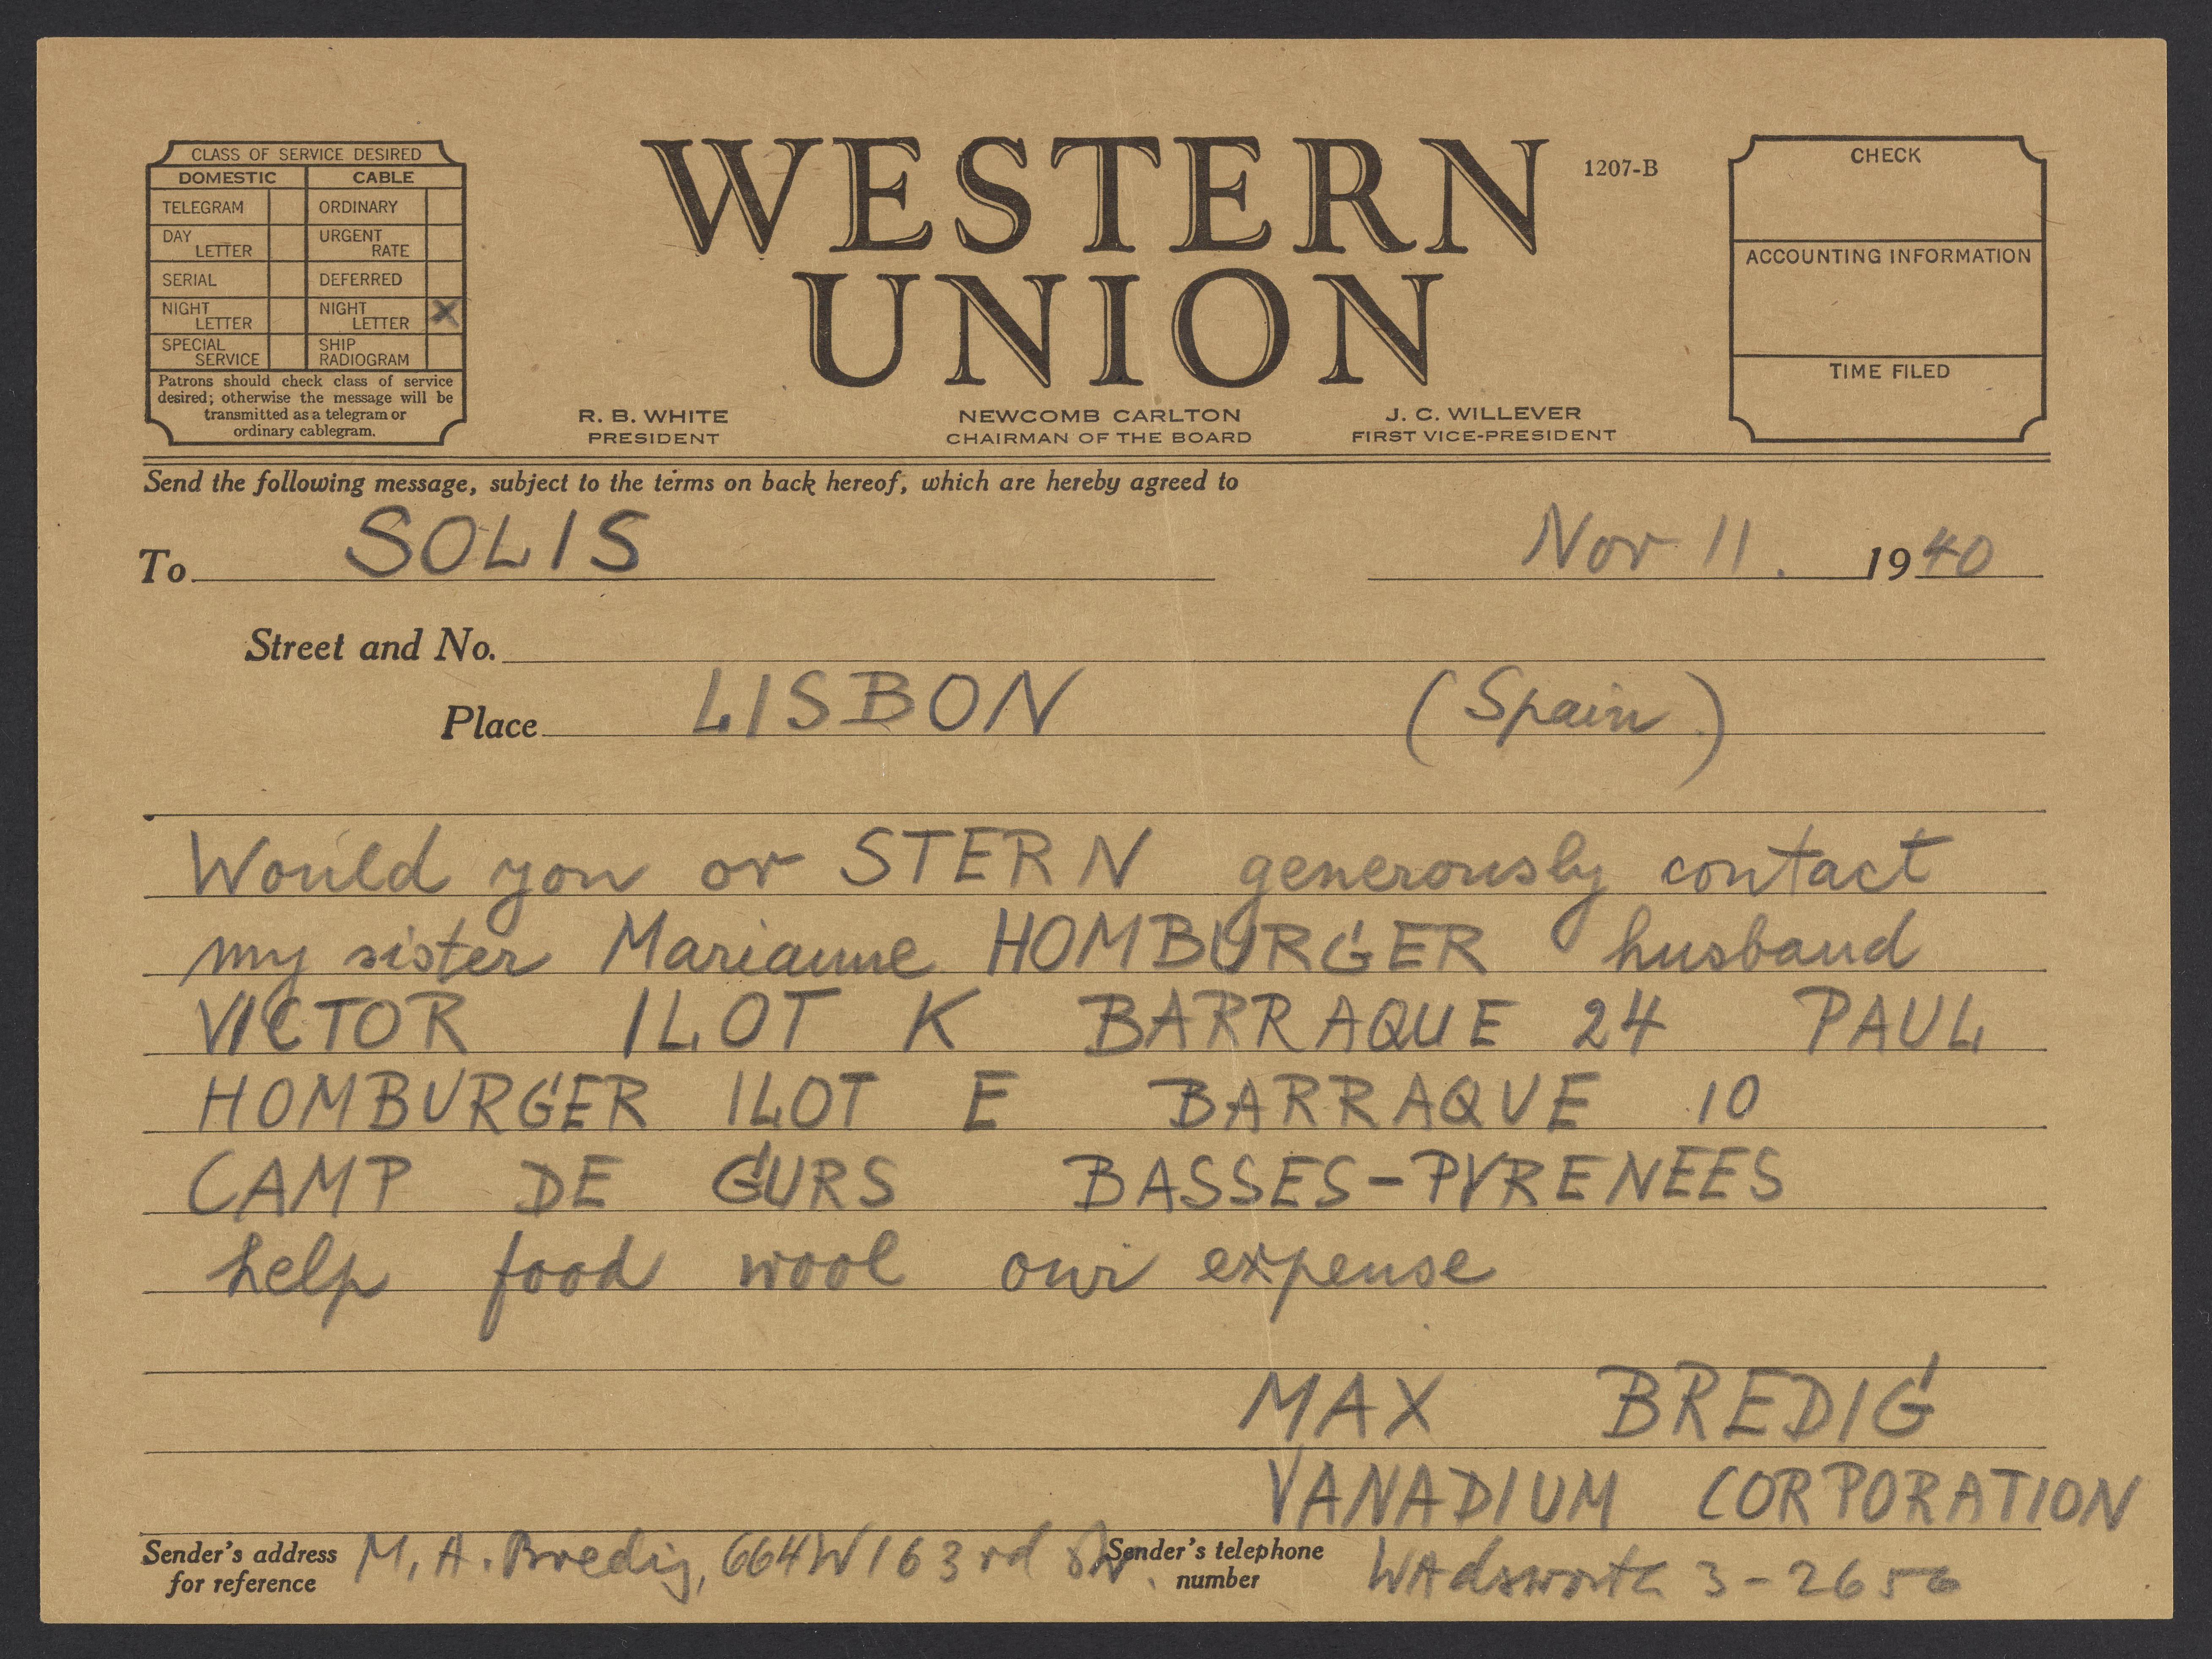 CLASS OF SERVICE DESIRED
DOMESTIC CABLE
TELEGRAM ORDINARY
DAY LETTER URGENT RATE
SERIAL DEFERRED
NIGHT LETTER NIGHT LETTER X
SPECIAL SERVICE SHIP RADIOGRAM
Patrons should check class of service
desired; otherwise the message will be
transmitted as a telegram or
ordinary cablegram.
WESTERN
UNION
1207-B
R. B. WHITE
PRESIDENT
NEWCOMB CARLTON
CHAIRMAN OF THE BOARD
J. C. WILLEVER
FIRST VICE-PRESIDENT
CHECK
ACCOUNTING INFORMATION
TIME FILED
Send the following message, subject to the terms on back hereof, which are hereby agreed to
To SOLIS Nov 11. 1940
Street and No.
Place LISBON (Spain)
Would you or STERN generously contact
my sister Marianne HOMBURGER husband
VICTOR ILOT K BARRAQUE 24 PAUL
HOMBURGER ILOT E BARRAQUE 10
CAMP DE GURS BASSES-PYRENEES
help food wool our expense
MAX BREDIG
VANADIUM CORPORATION
Sender's address for reference M. A. Bredig, 664 W 163rd Str. Sender's telephone number WAdsworth 3-2656